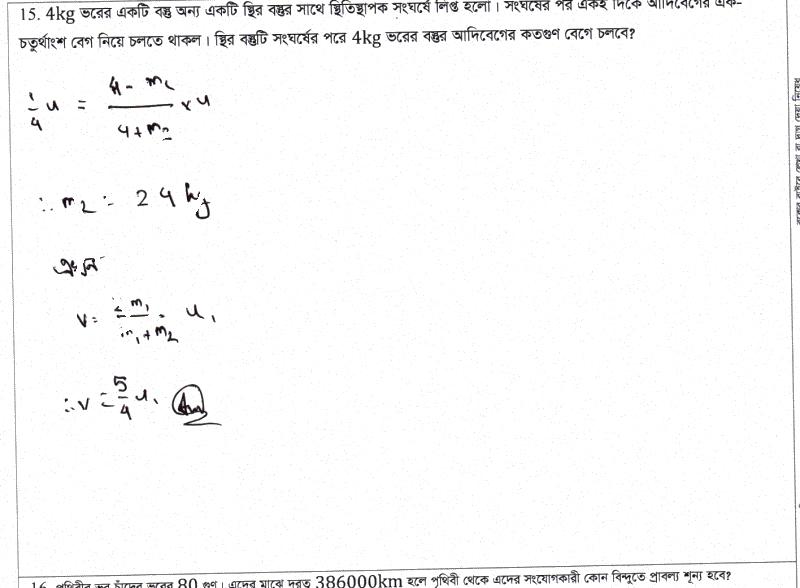 15. 4kg ভরের একটি বস্তু অন্য একটি স্থির বস্তুর সাথে স্থিতিস্থাপক সংঘর্ষে লিপ্ত হলো। সংঘর্ষের পর একই দিকে আদিবেগের এক-
চতুর্থাংশ বেগ নিয়ে চলতে থাকল। স্থির বস্তুটি সংঘর্ষের পরে 4kg ভরের বস্তুর আদিবেগের কতগুণ বেগে চলবে?
1/4 u = (4 - m₂)/(4 + m₂) × u
∴ m₂ = 2.4 kg
v = 2m₁/(m₁ + m₂) · u₁
∴ v = 5/4 u₁ Ans
16. পৃথিবীর ভর চাঁদের ভরের 80 গুণ। এদের মাঝে দূরত্ব 386000km হলে পৃথিবী থেকে এদের সংযোগকারী কোন বিন্দুতে প্রাবল্য শূন্য হবে?